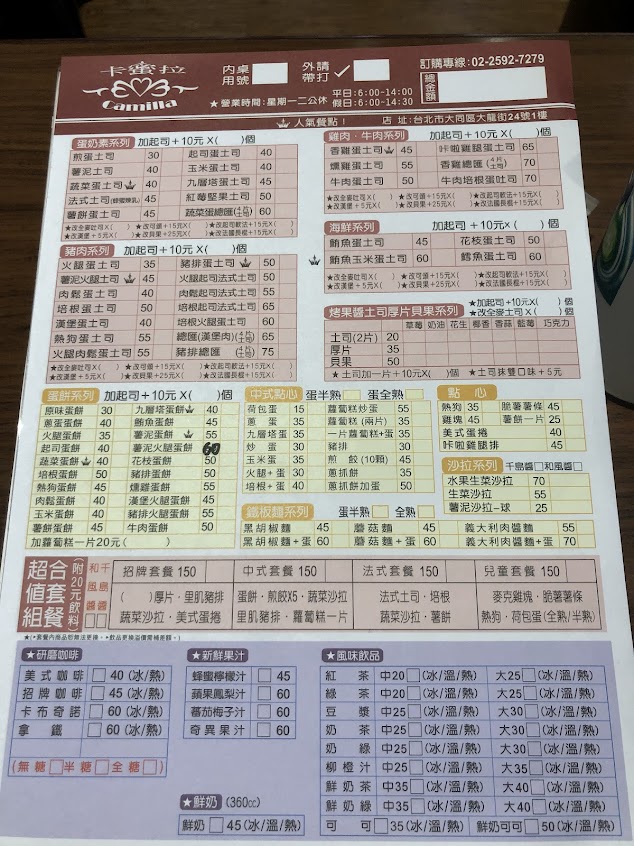 卡蜜拉
Camilla
內用 桌號
外帶 請打✓
訂購專線:02-2592-7279
總金額
平日:6:00-14:00
★營業時間:星期一二公休 假日:6:00-14:30
人氣餐點! 店 址:台北市大同區大龍街24號1樓
蛋奶素系列 加起司+10元 X( )個
煎蛋土司 30 起司蛋土司 40
薯泥土司 40 玉米蛋土司 40
蔬菜蛋土司 40 九層塔蛋土司 45
法式土司(蜂蜜煉乳) 45 紅莓堅果土司 50
薯餅蛋土司 45 蔬菜蛋總匯(4片土司) 60
★改全麥吐司X( ) ★改可頌+15元X( ) ★改起司軟法+15元X( )
★改漢堡+5元X( ) ★改貝果+25元X( ) ★改法國長棍+15元X( )
豬肉系列 加起司+10元 X( )個
火腿蛋土司 35 豬排蛋土司 50
薯泥火腿土司 50 火腿起司法式土司 50
肉鬆蛋土司 40 肉鬆起司法式土司 55
培根蛋土司 50 培根起司法式土司 65
漢堡蛋土司 40 培根火腿蛋土司 60
熱狗蛋土司 35 總匯(漢堡肉)(4片土司) 65
火腿肉鬆蛋土司 55 豬排總匯(4片土司) 75
★改全麥吐司X( ) ★改可頌+15元X( ) ★改起司軟法+15元X( )
★改漢堡+5元X( ) ★改貝果+25元X( ) ★改法國長棍+15元X( )
雞肉・牛肉系列 加起司+10元 X( )個
香雞蛋土司 45 咔啦雞腿蛋土司 65
燻雞蛋土司 55 香雞總匯(4片土司) 70
牛肉蛋土司 50 牛肉培根蛋吐司 70
★改全麥吐司X( ) ★改可頌+15元X( ) ★改起司軟法+15元X( )
★改漢堡+5元X( ) ★改貝果+25元X( ) ★改法國長棍+15元X( )
海鮮系列 加起司+10元 X( )個
鮪魚蛋土司 45 花枝蛋土司 50
鮪魚玉米蛋土司 60 鱈魚蛋土司 50
★改全麥吐司X( ) ★改可頌+15元X( ) ★改起司軟法+15元X( )
★改漢堡+5元X( ) ★改貝果+25元X( ) ★改法國長棍+15元X( )
烤果醬土司厚片貝果系列 ★加起司+10元X( )個
★加蛋+10元X( )個
草莓 奶油 花生 椰香 香蒜 藍莓 巧克力
土司(2片) 20
厚片 35
貝果 50
★土司加一片+10元X( )個 ★土司抹雙口味+5元
蛋餅系列 加起司+10元X( )個
原味蛋餅 30 九層塔蛋餅 40
蔥蛋蛋餅 30 鮪魚蛋餅 45
火腿蛋餅 35 薯泥蛋餅 55
起司蛋餅 40 薯泥火腿蛋餅 60
蔬菜蛋餅 40 花枝蛋餅 50
培根蛋餅 50 豬排蛋餅 50
熱狗蛋餅 35 燻雞蛋餅 55
肉鬆蛋餅 40 漢堡火腿蛋餅 45
玉米蛋餅 40 豬排火腿蛋餅 55
薯餅蛋餅 45 牛肉蛋餅 50
加蘿蔔糕一片20元( )
中式點心 蛋半熟 蛋全熟
荷包蛋 15 蘿蔔糕炒蛋 55
蔥蛋 30 蘿蔔糕(兩片) 35
九層塔蛋 35 一片蘿蔔糕+蛋 35
炒蛋 30 豬排 30
玉米蛋 35 煎餃(10顆) 45
火腿+蛋 30 蔥抓餅 35
培根+蛋 40 蔥抓餅加蛋 50
點心
熱狗 35 脆薯薯條 45
雞塊 45 薯餅一片 25
美式蛋捲 40
咔啦雞腿排 45
沙拉系列 千島醬 和風醬
水果生菜沙拉 70
生菜沙拉 55
薯泥沙拉-球 25
鐵板麵系列 蛋半熟 全熟
黑胡椒麵 45 蘑菇麵 45 義大利肉醬麵 55
黑胡椒麵+蛋 60 蘑菇麵+蛋 60 義大利肉醬麵+蛋 70
超值組合套餐(附20元飲料) 和風醬 千島醬
招牌套餐 150 中式套餐 150 法式套餐 150 兒童套餐 150
( )厚片・里肌豬排 蛋餅・煎餃X5・蔬菜沙拉 法式土司・培根 麥克雞塊・脆薯薯條
蔬菜沙拉・美式蛋捲 里肌豬排・蘿蔔糕一片 蔬菜沙拉・薯餅 熱狗・荷包蛋(全熟/半熟)
★研磨咖啡
美式咖啡 40 (冰/熱)
招牌咖啡 45 (冰/熱)
卡布奇諾 60 (冰/熱)
拿鐵 60 (冰/熱)
(無糖 半糖 全糖 )
★新鮮果汁
蜂蜜檸檬汁 45
蘋果鳳梨汁 60
蕃茄梅子汁 60
奇異果汁 60
★鮮奶 (360cc)
鮮奶 45 (冰/溫/熱)
★風味飲品
紅茶 中20 (冰/溫/熱) 大25 (冰/溫/熱)
綠茶 中20 (冰/溫/熱) 大25 (冰/溫/熱)
豆漿 中25 (冰/溫/熱) 大30 (冰/溫/熱)
奶茶 中25 (冰/溫/熱) 大30 (冰/溫/熱)
奶綠 中25 (冰/溫/熱) 大30 (冰/溫/熱)
柳橙汁 中25 (冰/溫/熱) 大35 (冰/溫/熱)
鮮奶茶 中35 (冰/溫/熱) 大40 (冰/溫/熱)
鮮奶綠 中35 (冰/溫/熱) 大40 (冰/溫/熱)
可可 35 (冰/溫/熱) 鮮奶可可 50 (冰/溫/熱)